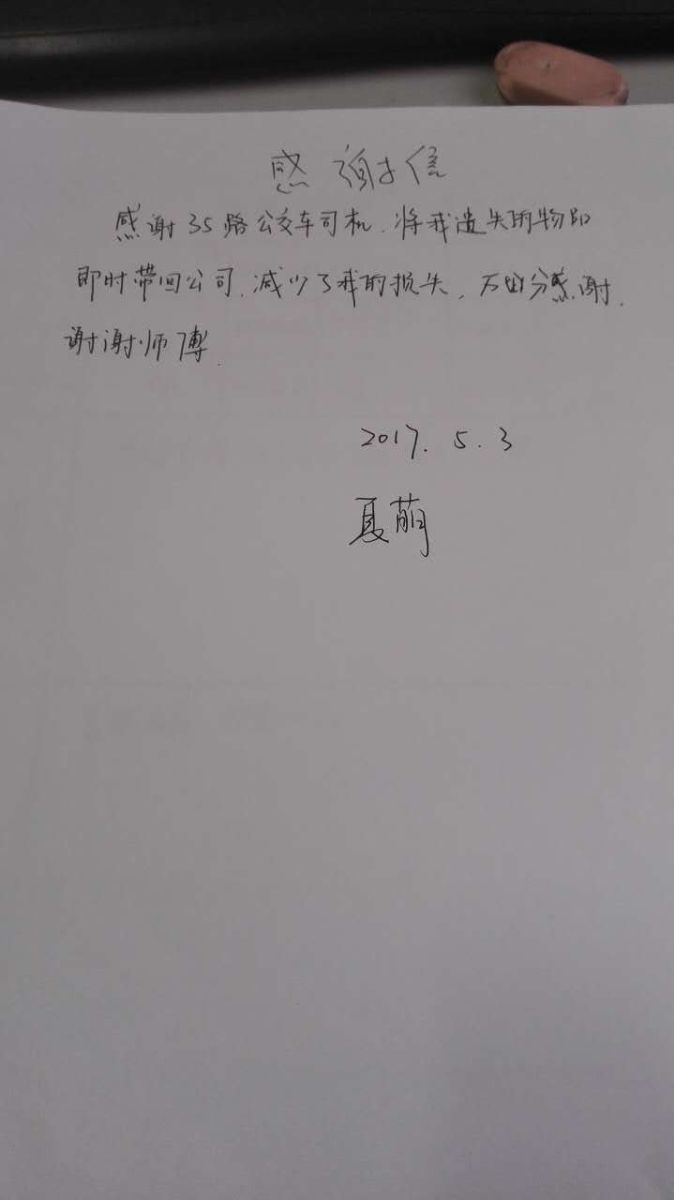 感谢信
感谢35路公交车司机.将我遗失的物即
即时带回公司.减少了我的损失,万分感谢.
谢谢师傅.
2017.5.3
夏萌